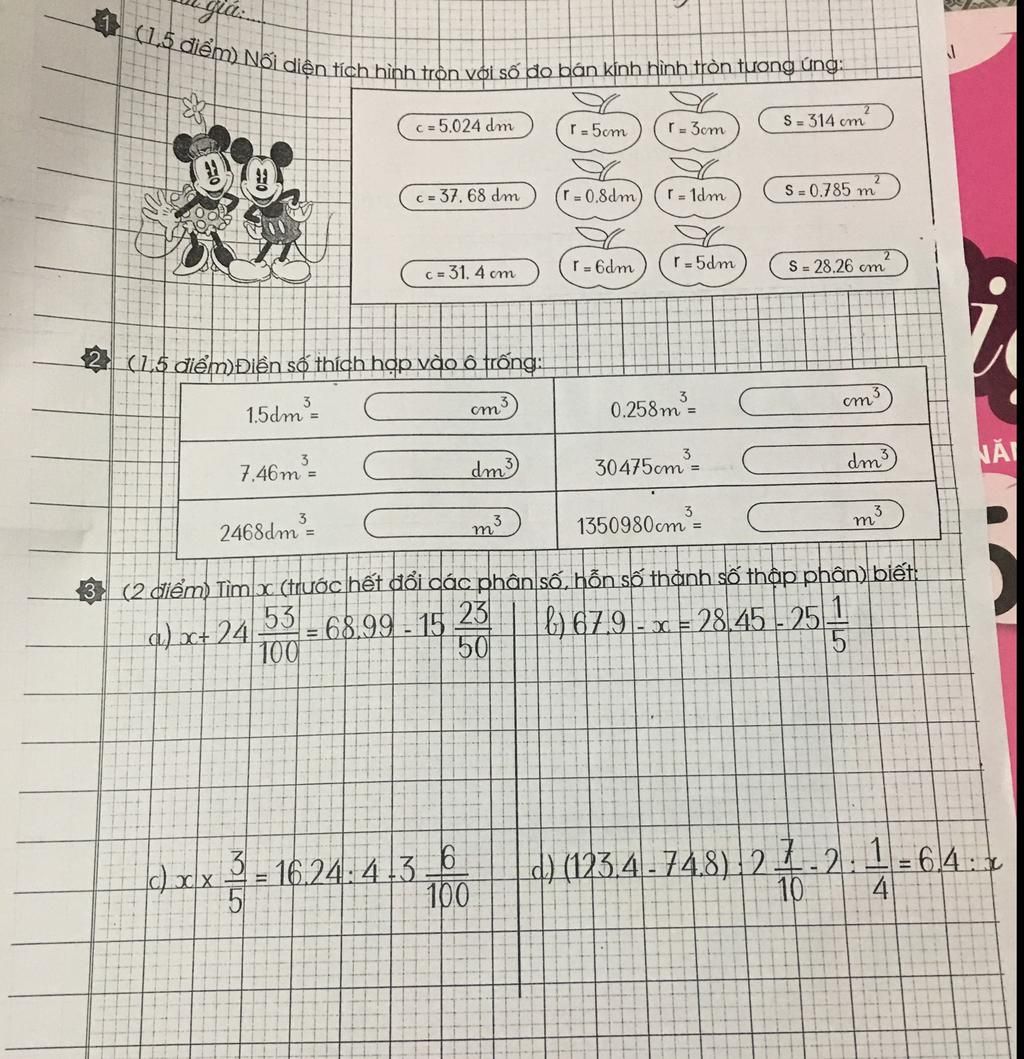 giá:....
1 (1,5 điểm) Nối diện tích hình tròn với số đo bán kính hình tròn tương ứng:
c = 5.024 dm r = 5cm r = 3cm S = 314 cm²
c = 37. 68 dm r = 0.8dm r = 1dm S = 0.785 m²
c = 31. 4 cm r = 6dm r = 5dm S = 28.26 cm²
2 (1,5 điểm)Điền số thích hợp vào ô trống:
1.5dm³= cm³ 0.258m³= cm³
7.46m³= dm³ 30475cm³= dm³
2468dm³= m³ 1350980cm³= m³
3 (2 điểm) Tìm x (trước hết đổi các phân số, hỗn số thành số thập phân) biết:
a) x+ 24 53/100 = 68,99 - 15 23/50 b) 67,9 - x = 28,45 - 25 1/5
c) x × 3/5 = 16,24 : 4 - 3 6/100 d) (123,4 - 74,8) : 2 7/10 - 2 : 1/4 = 6,4 : x